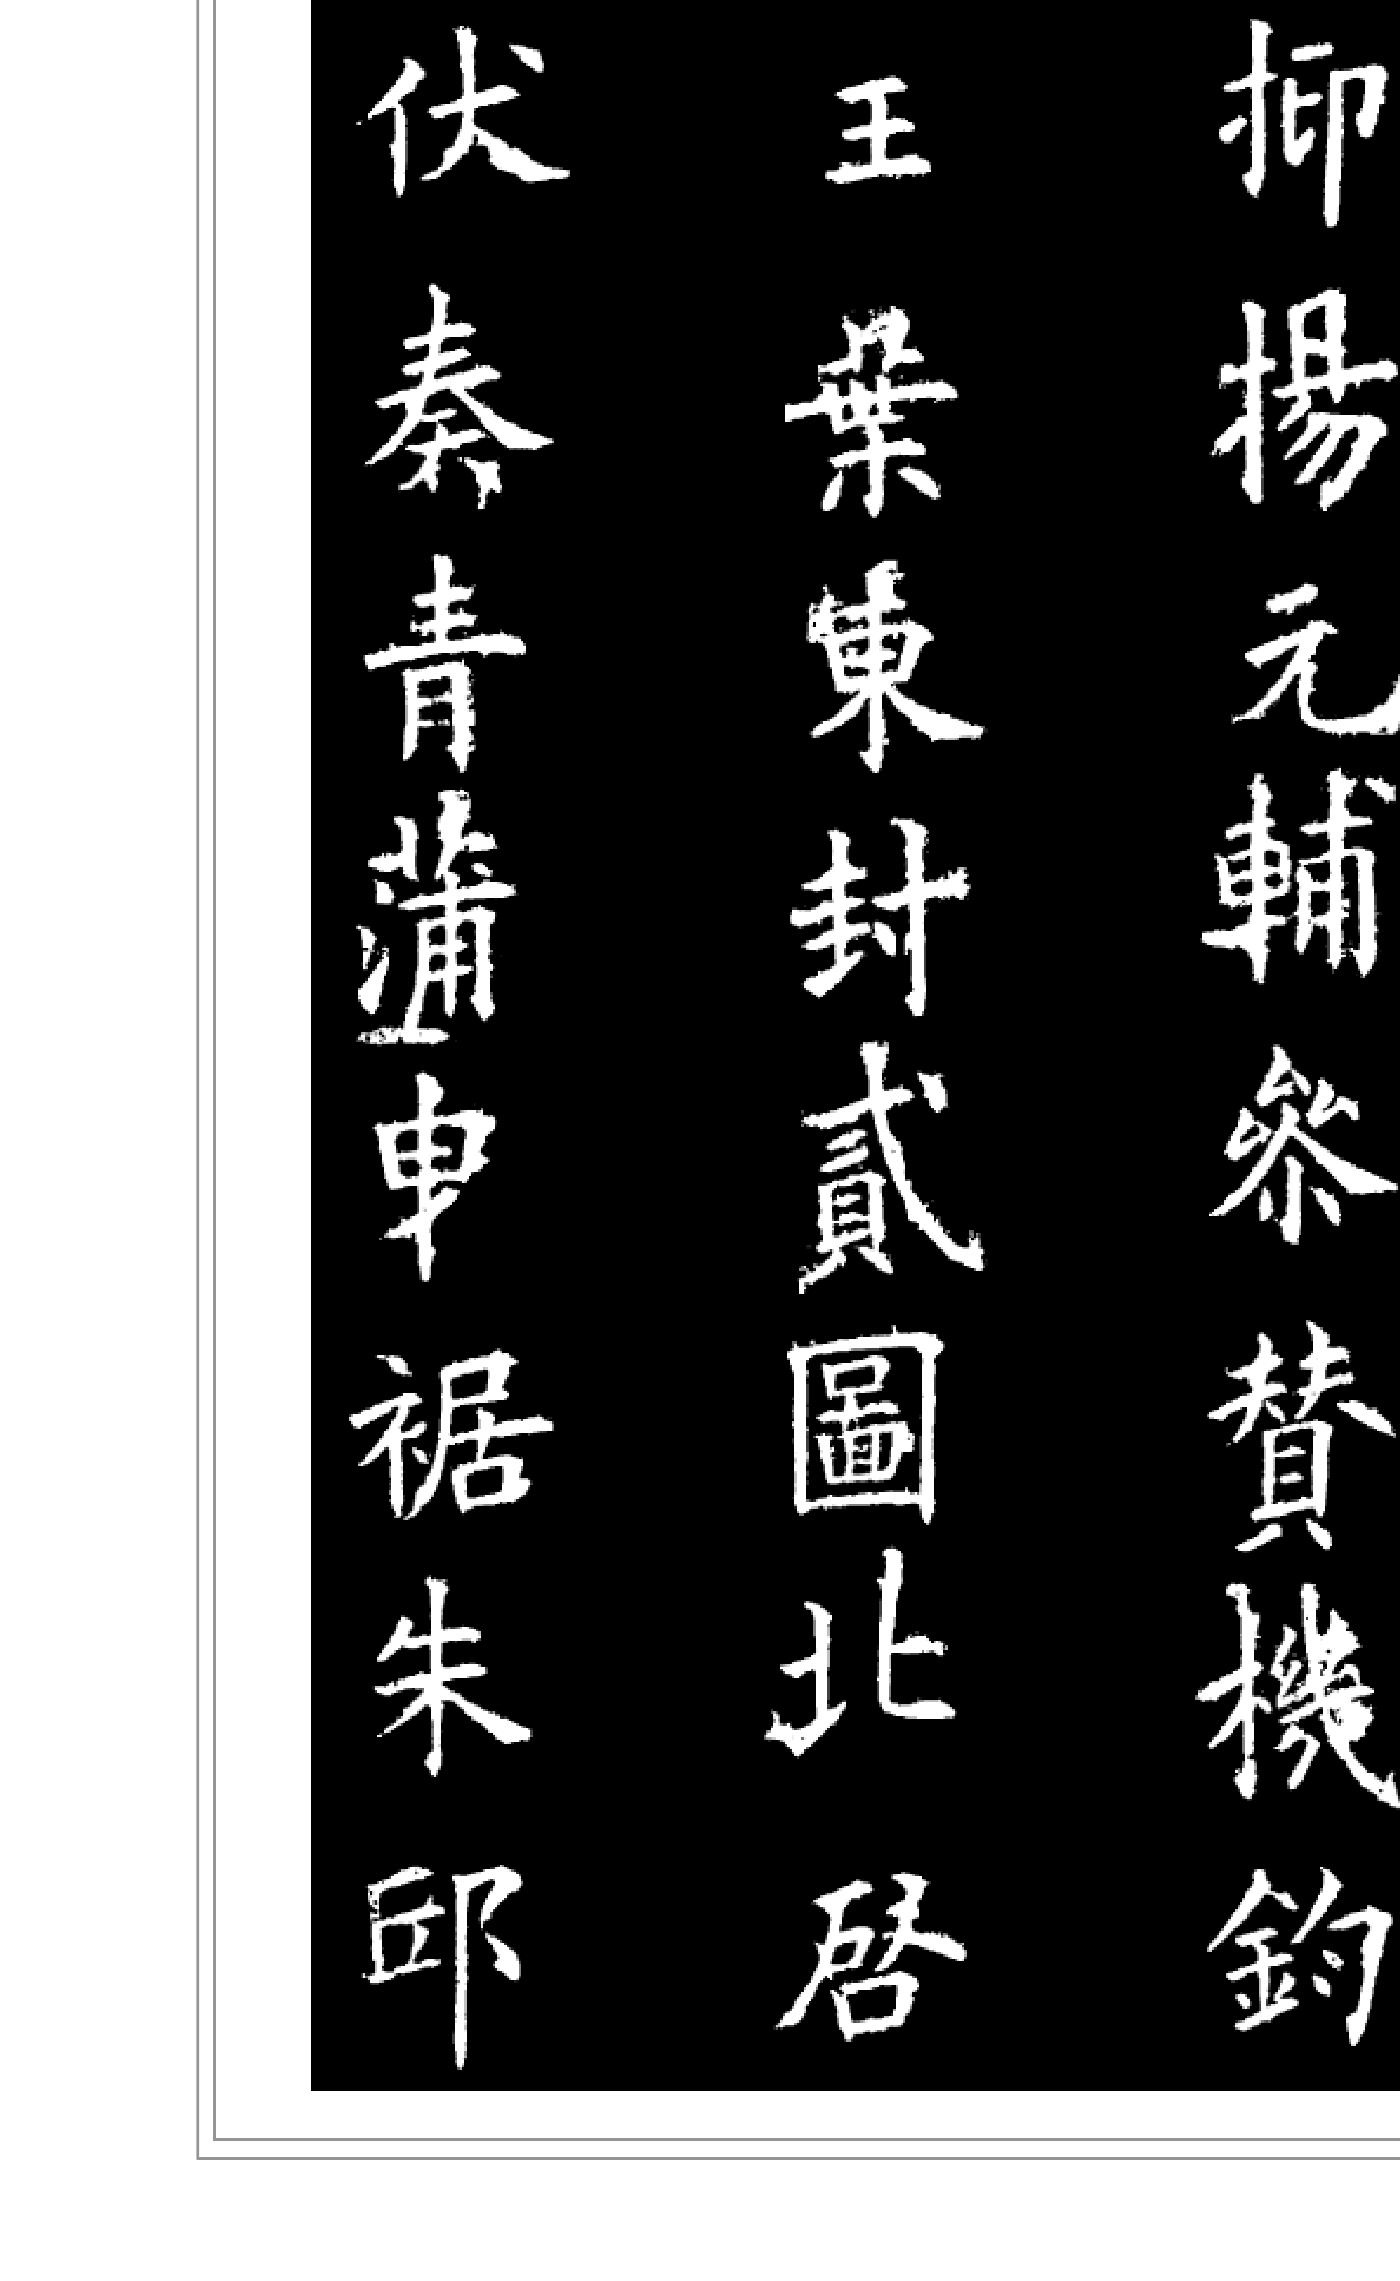 抑揚元輔參贊機鈞
王業東封貳圖北啓
伏奏青蒲申裾朱邸